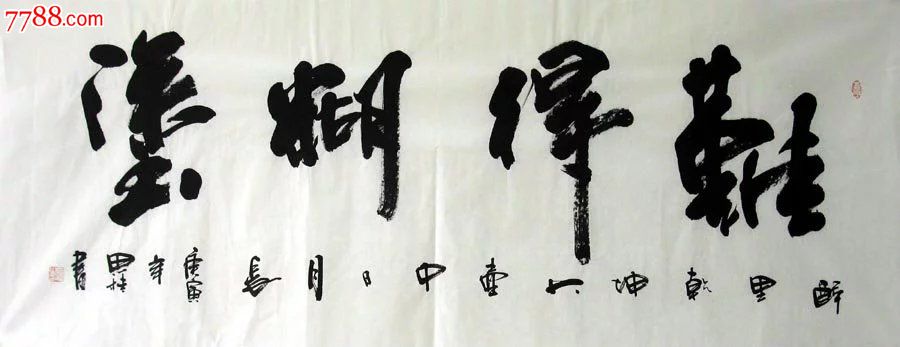 7788.com
難得糊塗
醉里乾坤大壺中日月長庚寅年書